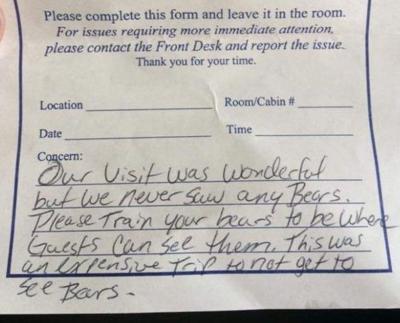 Please complete this form and leave it in the room.
For issues requiring more immediate attention,
please contact the Front Desk and report the issue.
Thank you for your time.
Location Room/Cabin #
Date Time
Concern:
Our Visit was Wonderful
but we never saw any Bears.
Please Train your bears to be where
Guests can see them. This was
an expensive Trip to not get to
See Bears.